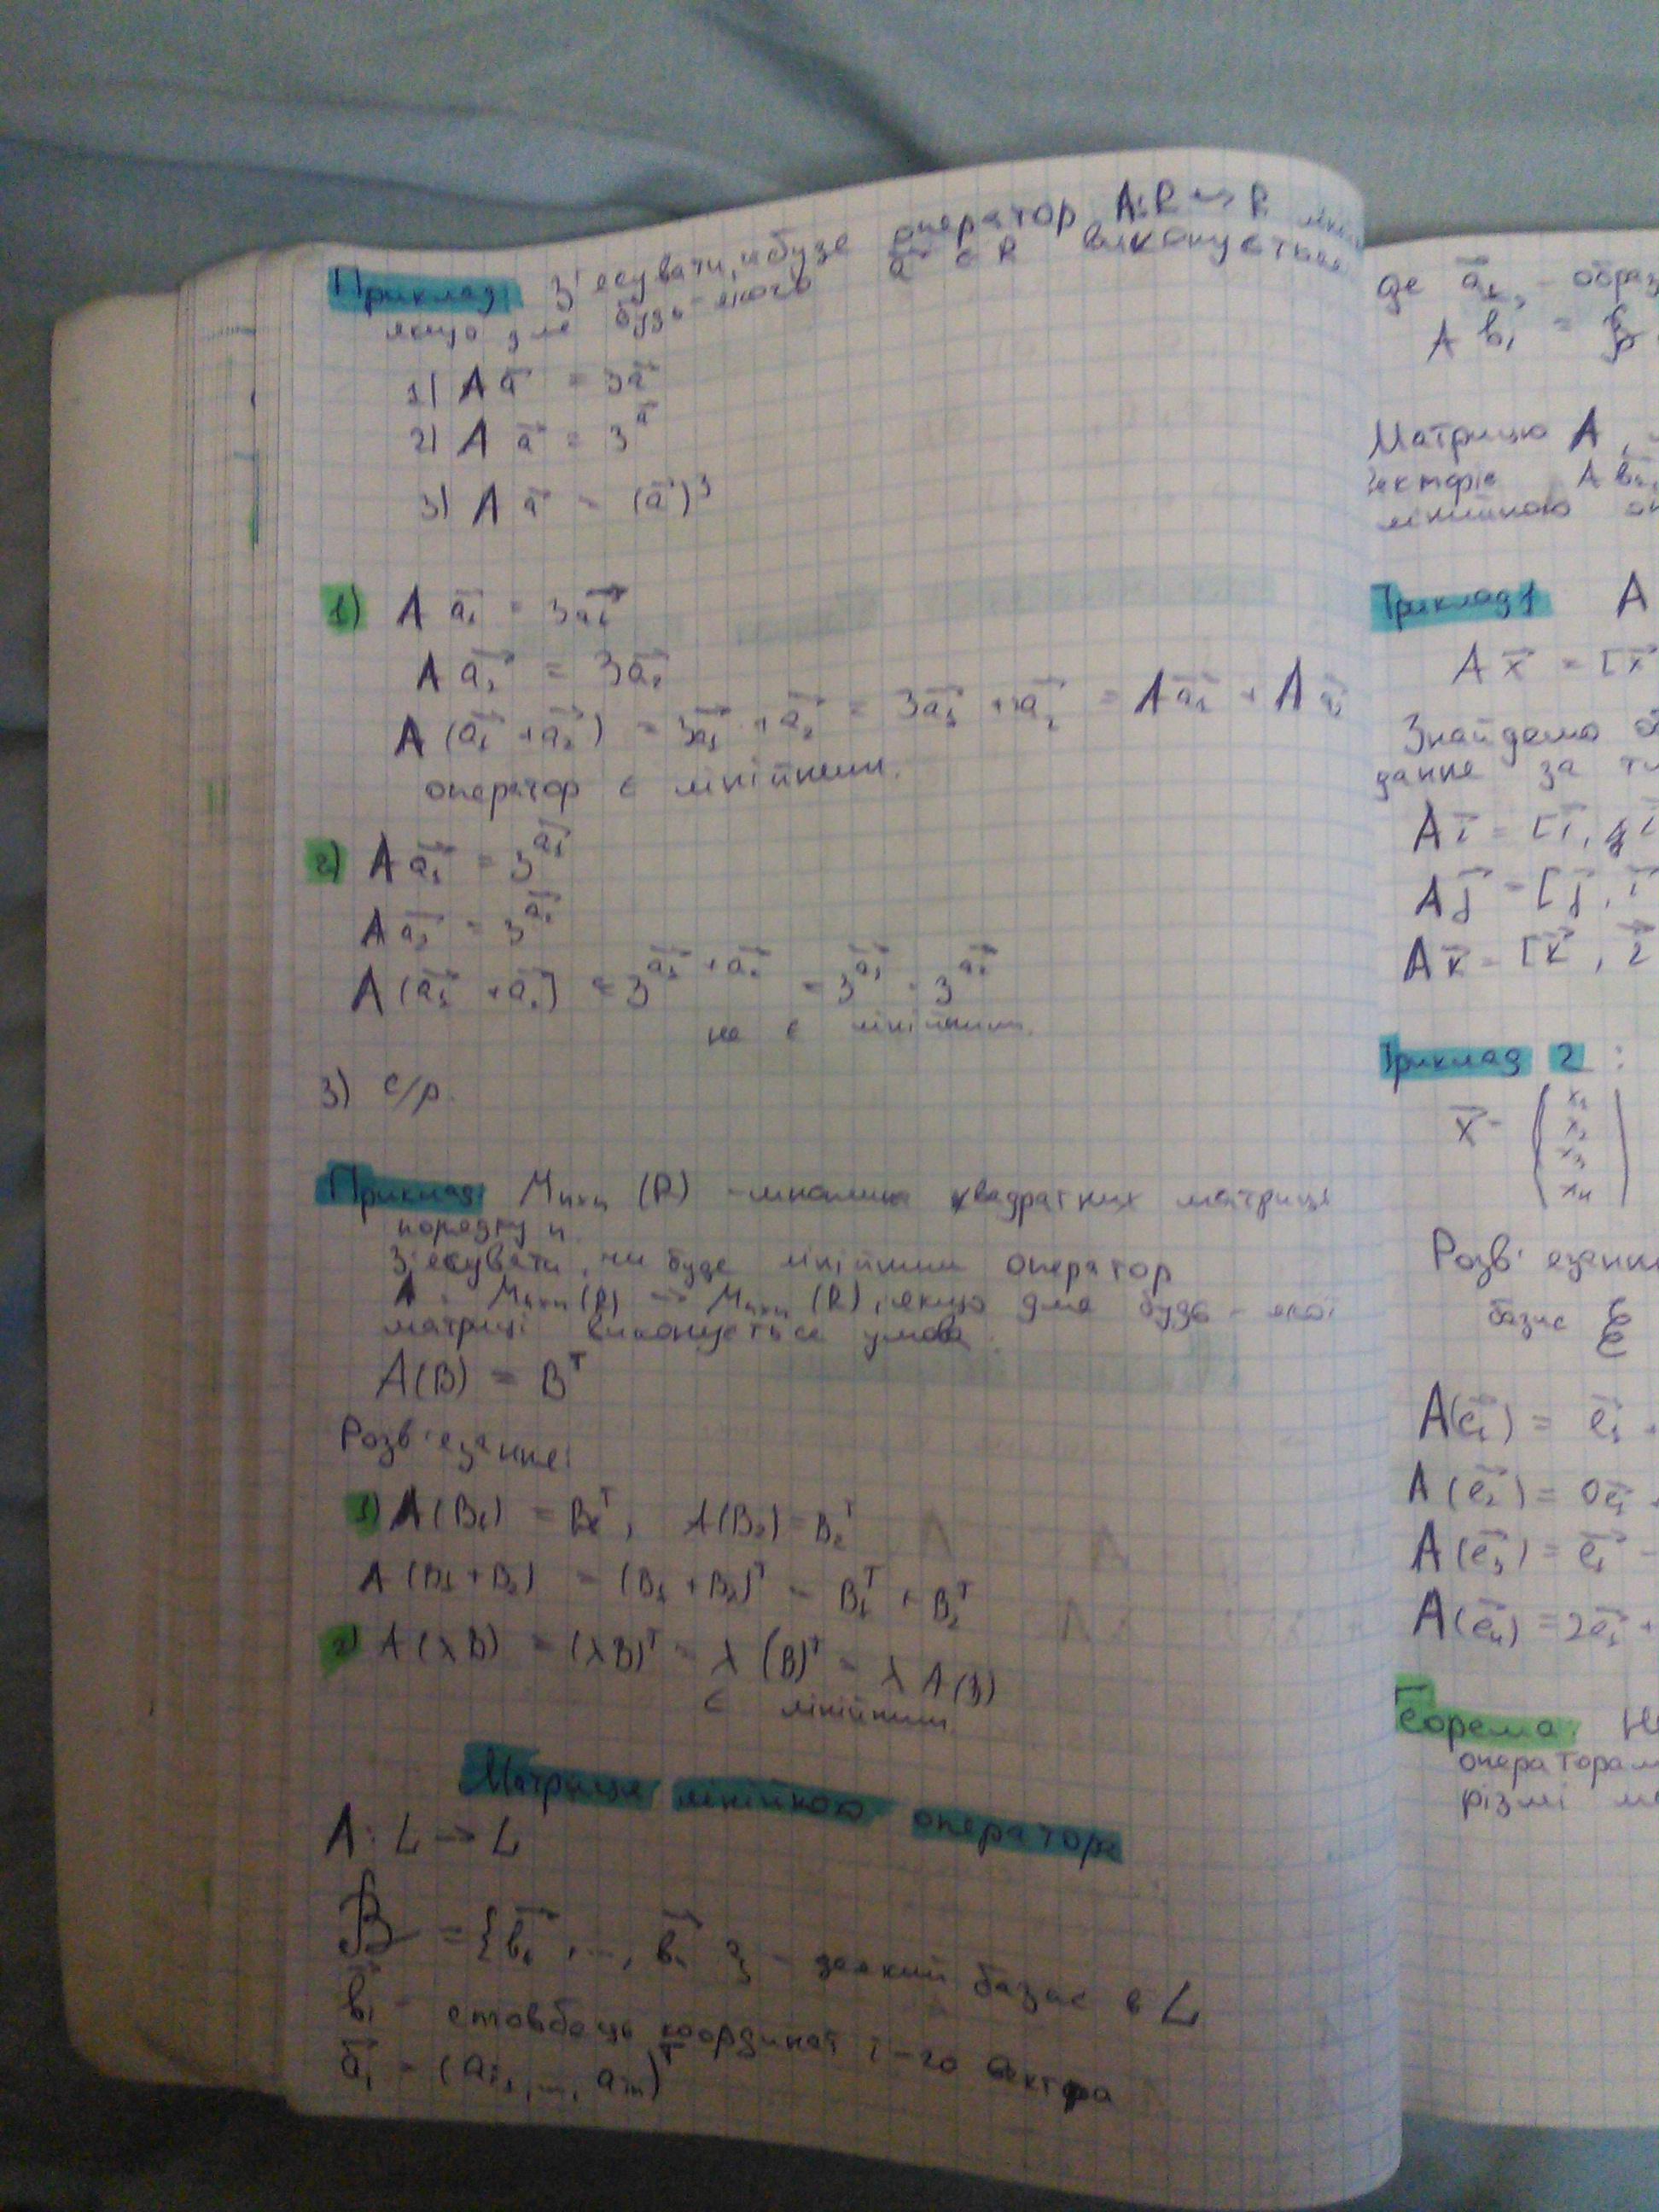 Приклад: З'ясувати, чи буде оператор A: R → R
якщо для будь-якого a⃗ ∈ R виконується
1) A a⃗ = 3a⃗
2) A a⃗ = 3^a⃗
3) A a⃗ = (a⃗)³
1) A a₁⃗ = 3a₁⃗
A a₂⃗ = 3a₂⃗
A (a₁⃗ + a₂⃗) = 3a₁⃗ + a₂⃗ = 3a₁⃗ + 3a₂⃗ = A a₁⃗ + A a₂⃗
оператор є лінійним.
2) A a₁⃗ = 3^a₁⃗
A a₂⃗ = 3^a₂⃗
A (a₁⃗ + a₂⃗) = 3^(a₁⃗ + a₂⃗) = 3^a₁⃗ · 3^a₂⃗
не є лінійним.
3) с/р.
Приклад: Mₙₓₙ (R) - множина квадратних матриць
порядку n.
З'ясувати, чи буде лінійним оператор
A : Mₙₓₙ (R) → Mₙₓₙ (R), якщо для будь-якої
матриці виконується умова
A(B) = Bᵀ
Розв'язання:
1) A(B₁) = B₁ᵀ, A(B₂) = B₂ᵀ
A (B₁ + B₂) = (B₁ + B₂)ᵀ = B₁ᵀ + B₂ᵀ
2) A (λB) = (λB)ᵀ = λ (B)ᵀ = λ A(B)
є лінійним
Матриця лінійного оператора
A: L → L
B = {b₁⃗, ..., bₙ⃗ } - деякий базис в L
bᵢ⃗ - стовбець координат i-го вектора
aᵢ⃗ = (aᵢ₁, ..., aᵢₙ)ᵀ
де aₖ⃗ - образ
A bᵢ =
Матрицю A,
лінійного
Приклад 1 A
A x⃗ = [x⃗
Знайдемо
за
A i⃗ = [i⃗,
A j⃗ = [j⃗,
A k⃗ = [k⃗,
Приклад 2 :
x⃗ = (x₁
x₂
x₃
x₄)
Розв'язання
базис ℰ
A(e₁⃗) = e₁⃗
A(e₂⃗) = 0e₁⃗
A(e₃⃗) = e₁⃗ -
A(e₄⃗) = 2e₁⃗ +
Теорема:
операторам
різні